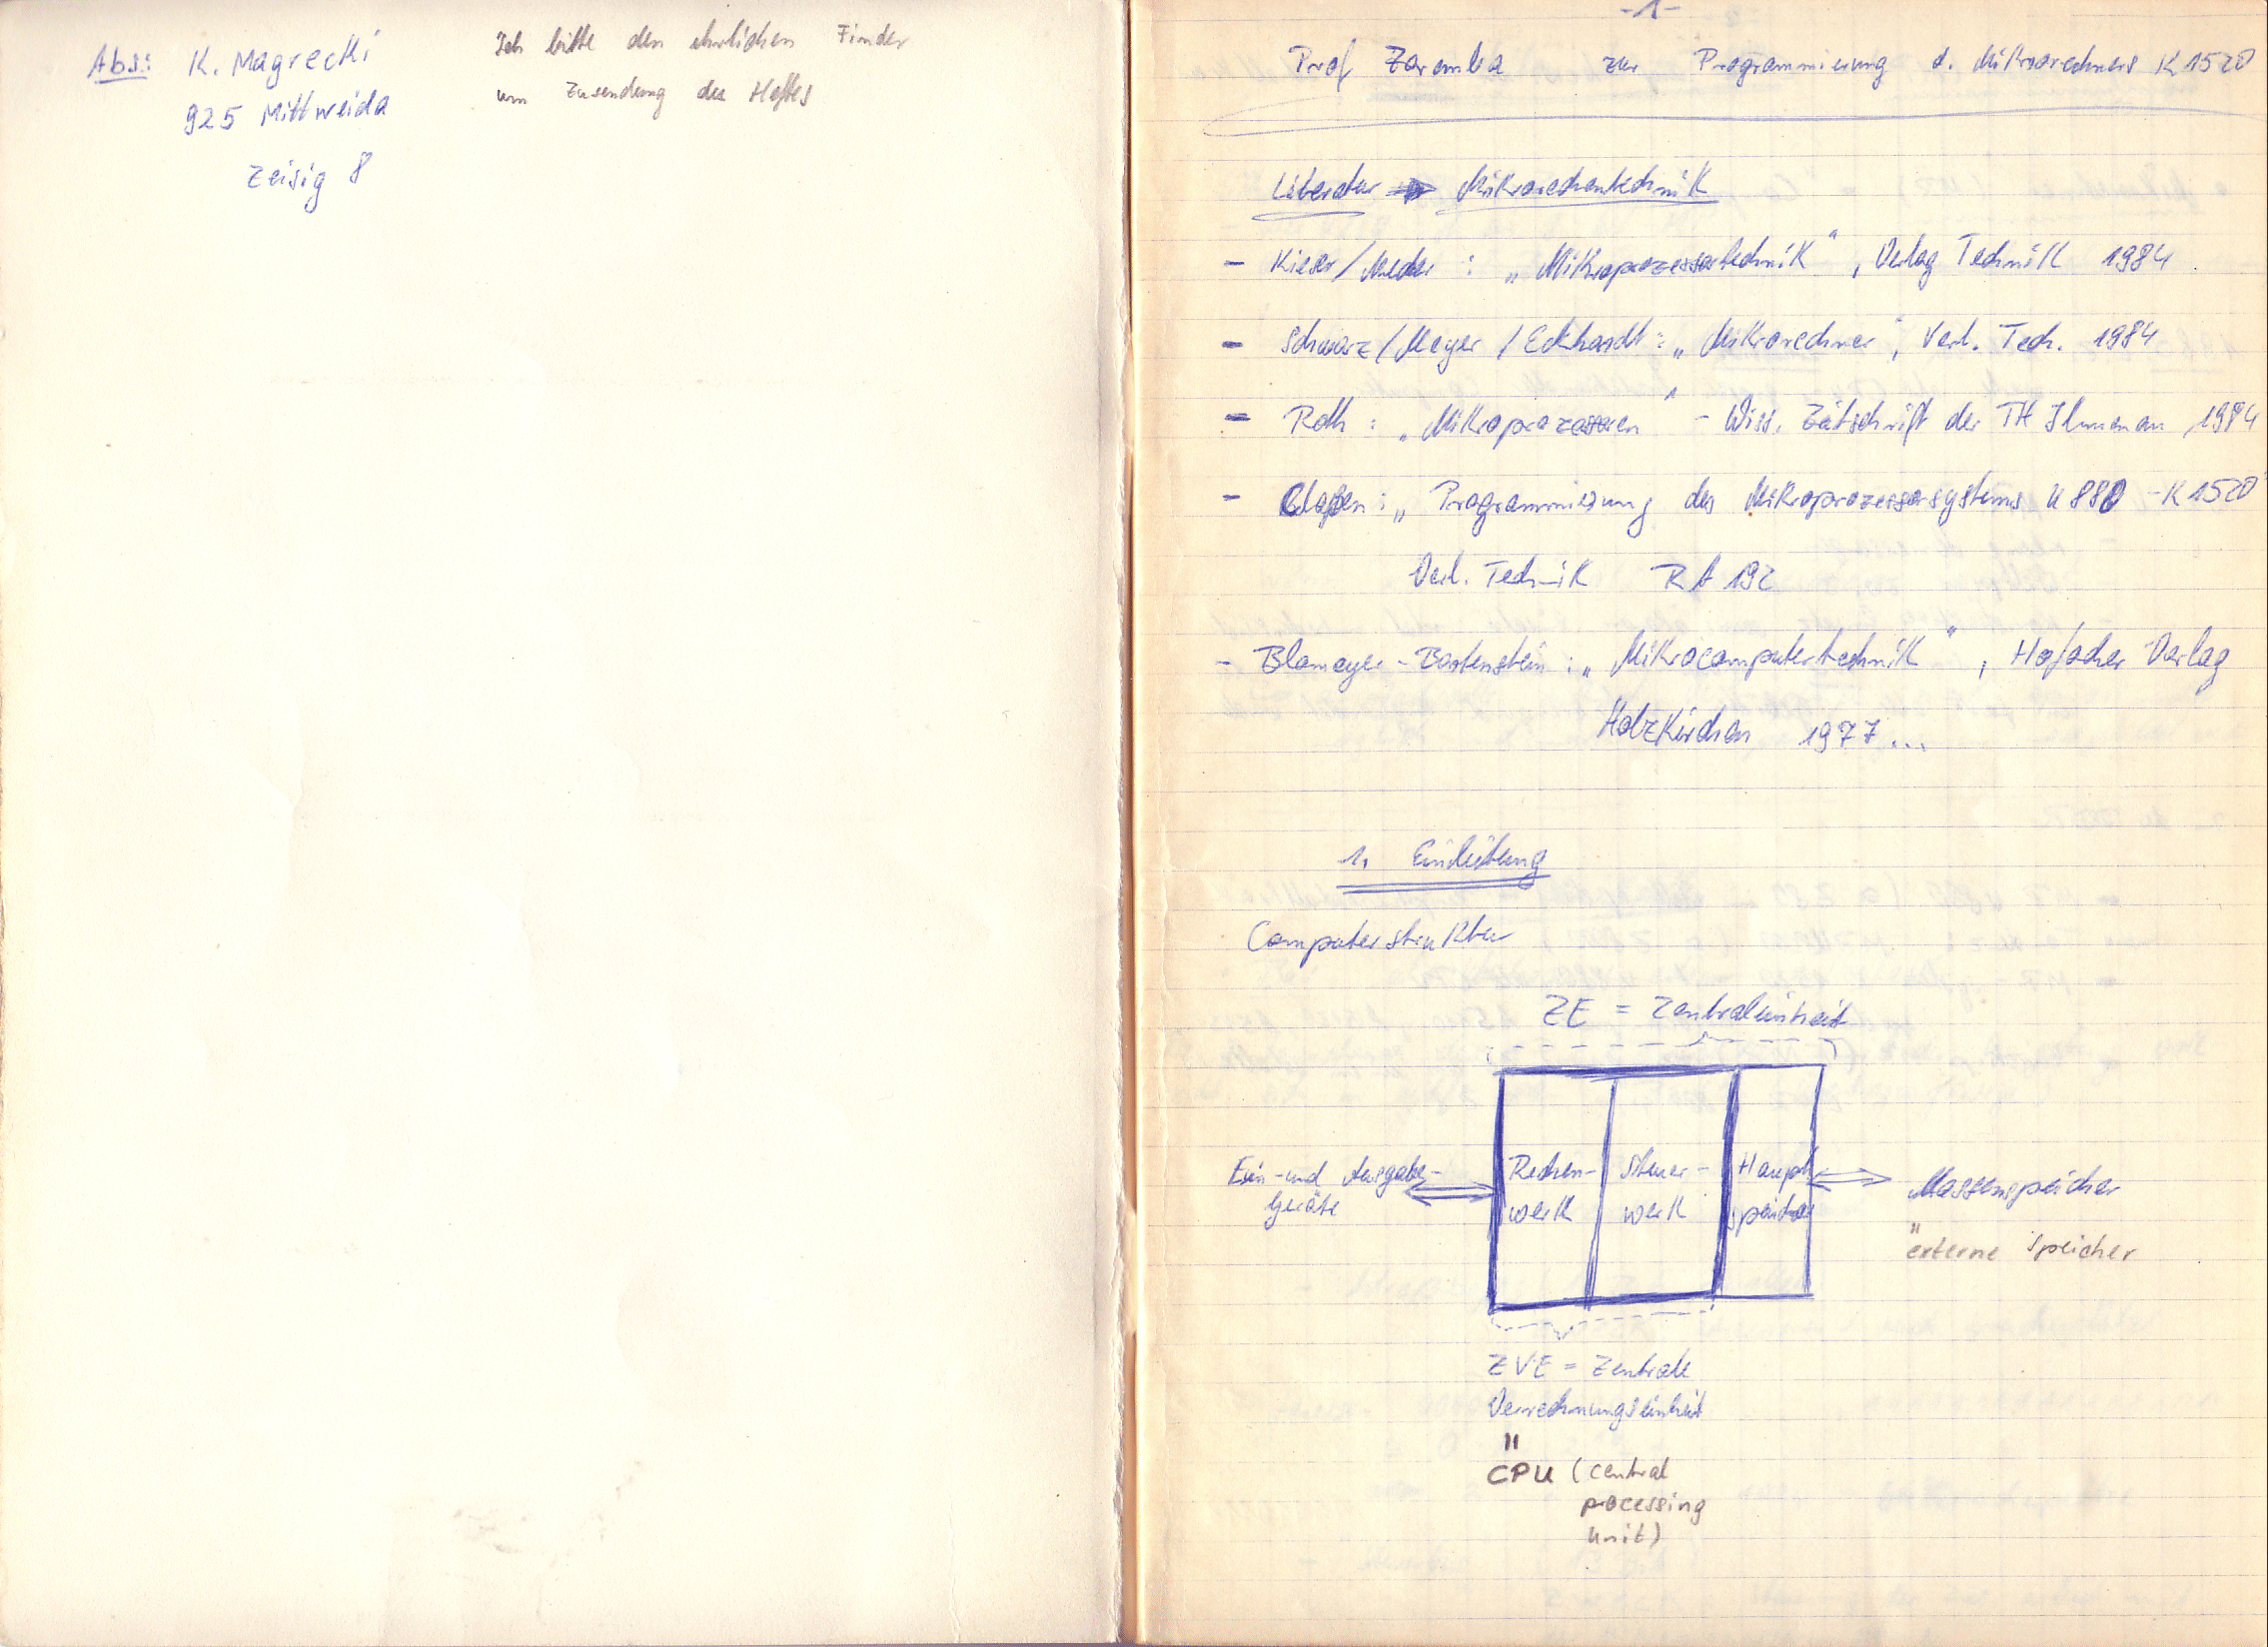 Abs: K. Magrecki
925 Mittweida
Zeisig 8
Ich bitte den ehrlichen Finder
um Zusendung des Heftes
-1-
Prof Zaremba zur Programmierung d. Mikrorechners K 1520
Literatur ⇒ Mikrorechentechnik
- Kieser/Meder : „Mikroprozessortechnik", Verlag Technik 1984
- Schwarz/Meyer/Eckhardt: „Mikrorechner", Verl. Tech. 1984
- Roth : „Mikroprozessoren" - Wiss. Zeitschrift der TH Ilmenau, 1984
- Claßen: „Programmierung des Mikroprozessorsystems U 880 - K 1520"
Verl. Technik RA 192
- Blomeyer-Bartenstein: „Mikrocomputertechnik", Hofacker Verlag
Holzkirchen 1977...
1. Einleitung
Computerstruktur
ZE = Zentraleinheit
Ein- und Ausgabe-
geräte
Rechen-
werk
Steuer-
werk
Haupt
speicher
Massenspeicher
"
externe Speicher
ZVE = Zentrale
Verrechnungseinheit
"
CPU (central
processing
unit)